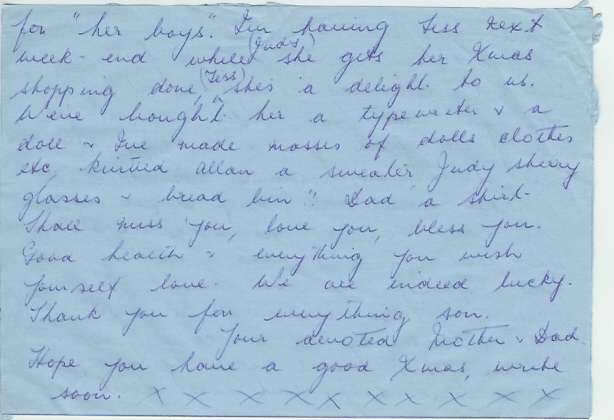 for "her boys". I'm having Tess next
week-end while (Judy) she gets her Xmas
shopping done, (Tess) she's a delight to us.
We've bought her a typewriter & a
doll & I've made masses of dolls clothes
etc, knitted Allan a sweater, Judy sherry
glasses & bread bin!! Dad a shirt.
Shall miss you, love you, bless you.
Good health & everything you wish
yourself love. We are indeed lucky.
Thank you for everything son.
Your devoted Mother & Dad
Hope you have a good Xmas, write
soon. X X X X X X X X X X